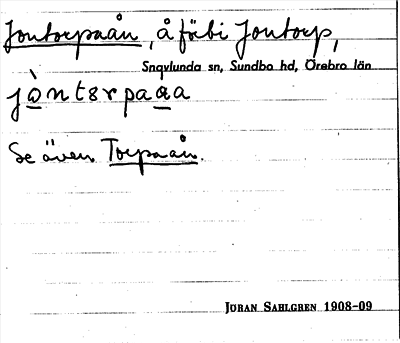 Jontorpaån, å förbi Jontorp,
Snavlunda sn, Sundbo hd, Örebro län
jòntɜrpaaa
Se även Torpaån.
JÖRAN SAHLGREN 1908-09